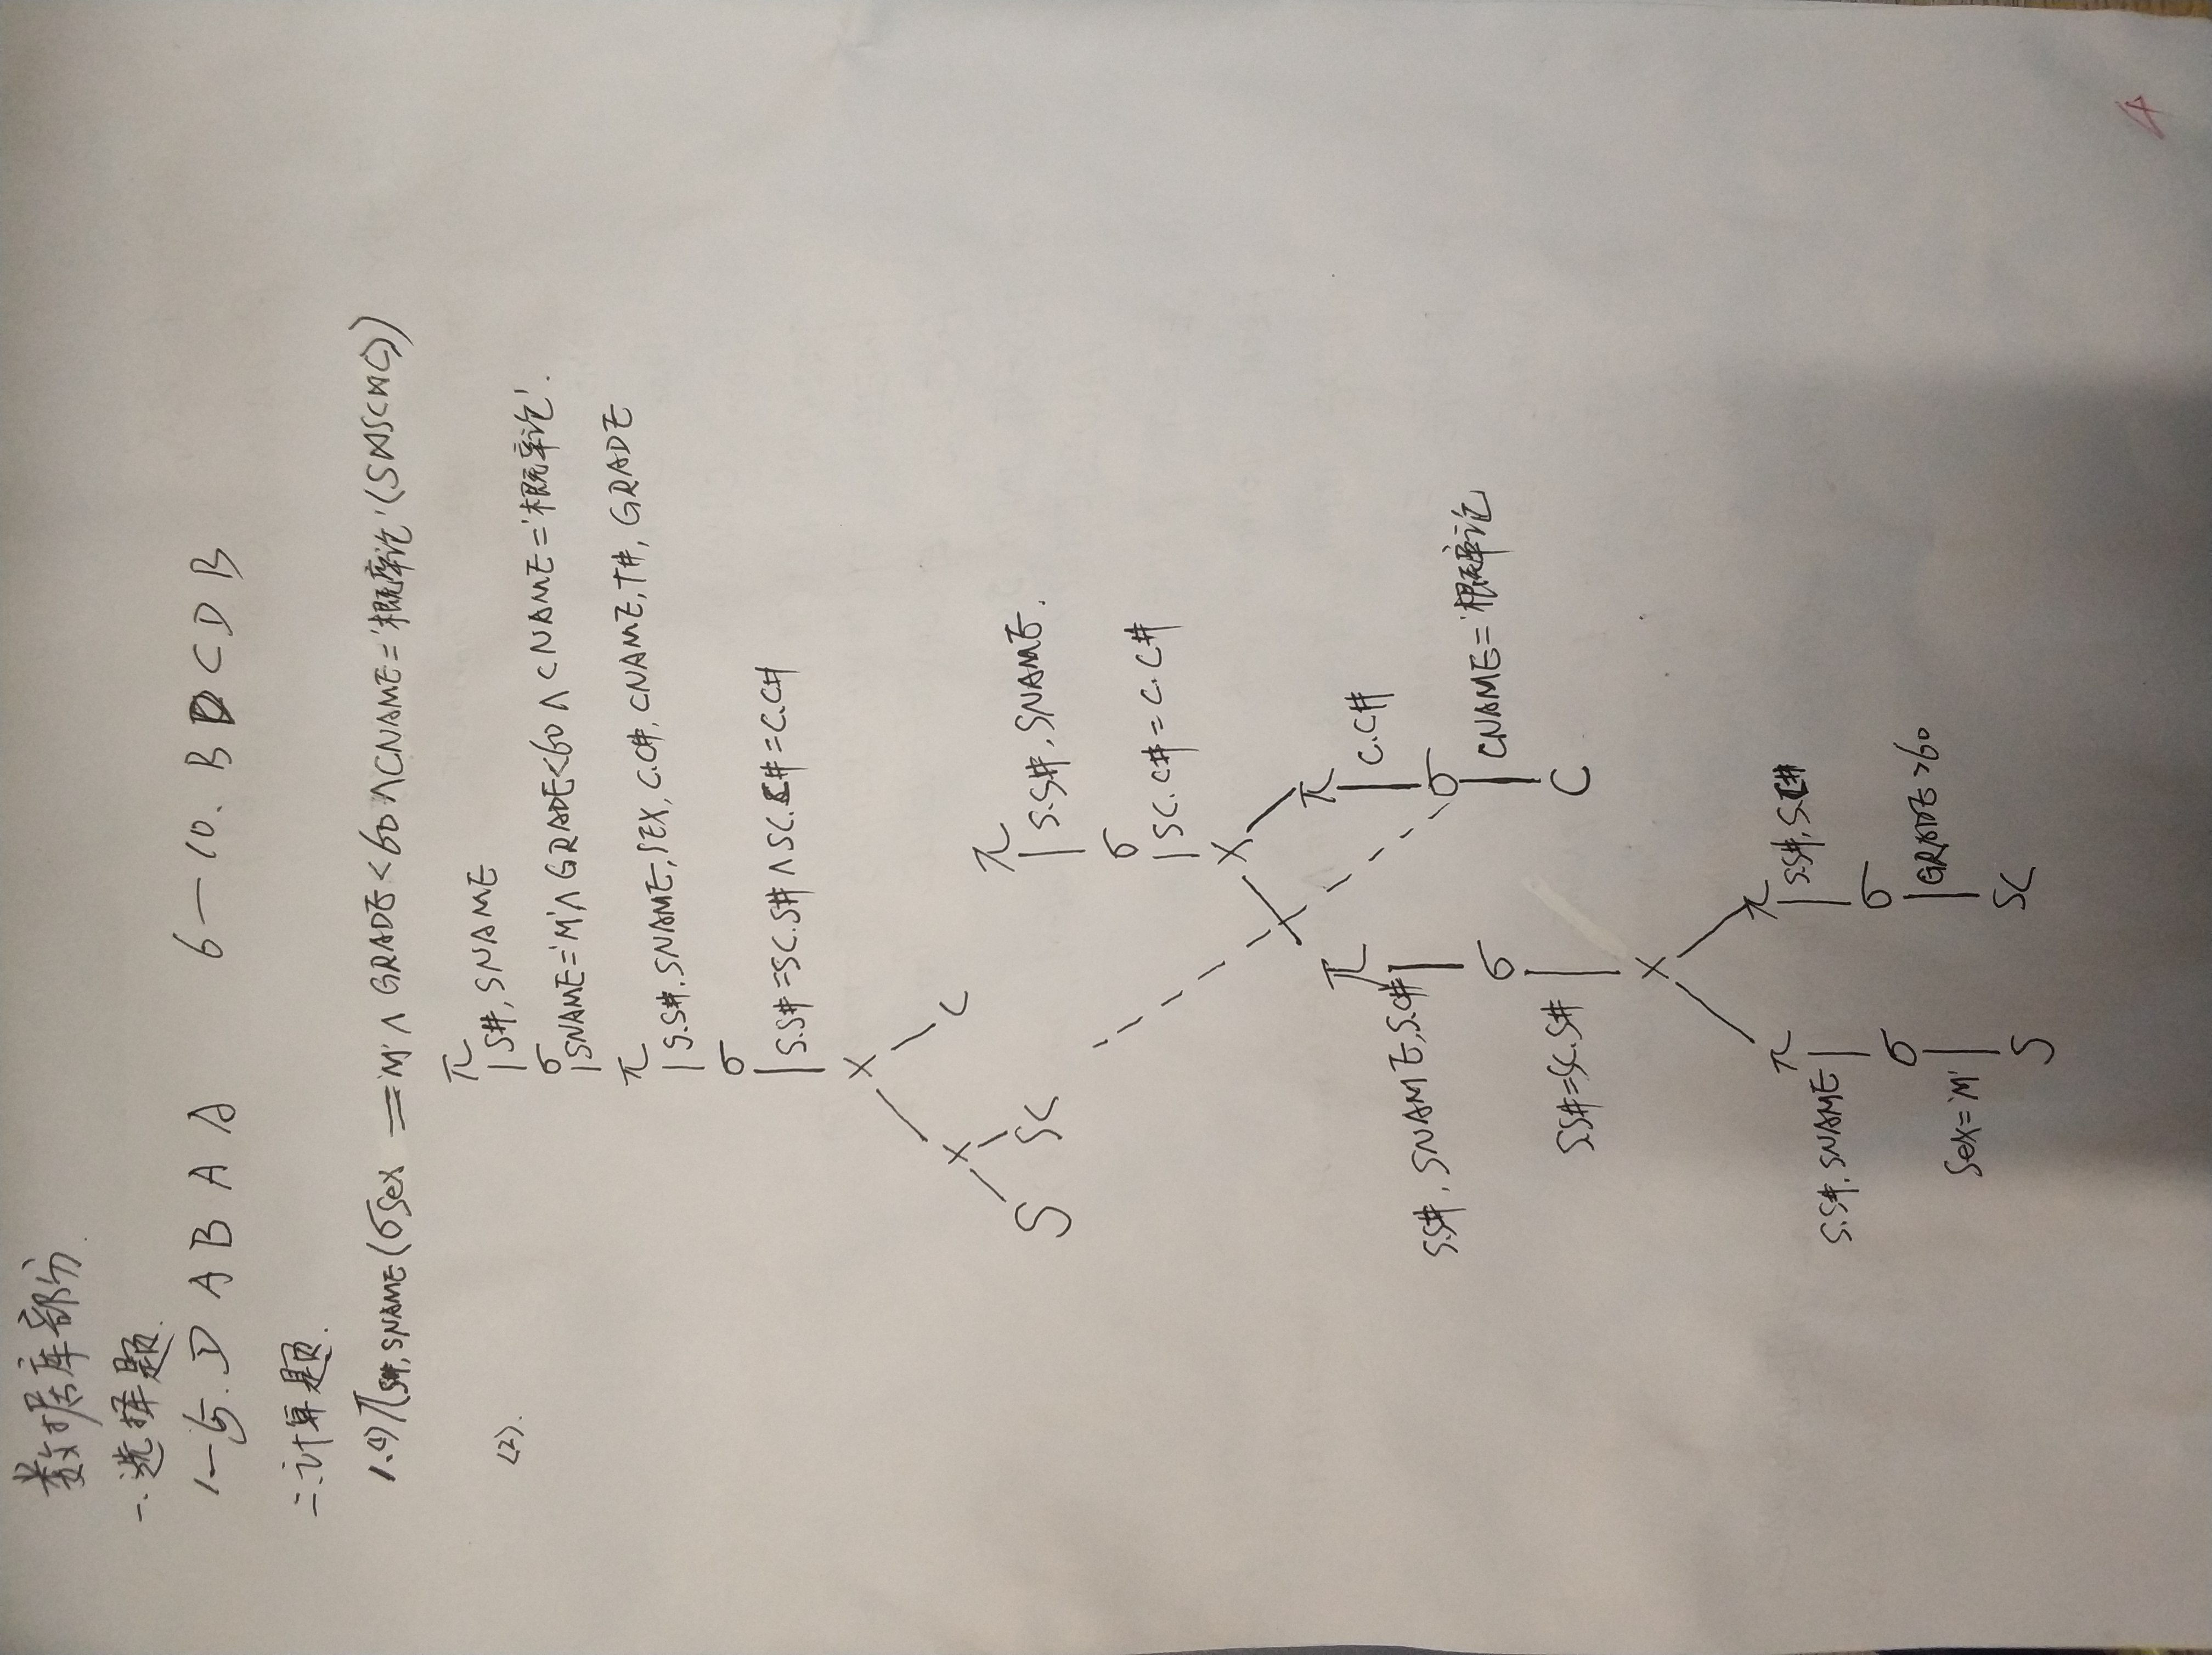 数据库部分.
一.选择题.
1-5. D A B A A 6-10. B D C D B
二.计算题.
1.(1) π S#,SNAME (σ Sex =='M' ∧ GRADE<60 ∧ CNAME='概率论' (S⋈SC⋈C))
(2).
π
S#, SNAME
σ
SNAME='M' ∧ GRADE<60 ∧ CNAME='概率论'.
π
S.S#, SNAME, SEX, C.C#, CNAME, T#, GRADE
σ
S.S#=SC.S# ∧ SC.C#=C.C#
×
× C
S SC
π
S.S#, SNAME.
σ
SC.C#=C.C#
×
π π
C.C#
S.S#, SNAME, S.C#
σ
CNAME='概率论
σ
S.S#=SC.S#
C
×
π π
S.S#, S.C#
S.S#, SNAME
σ σ
GRADE>60
Sex='M'
S SC
4